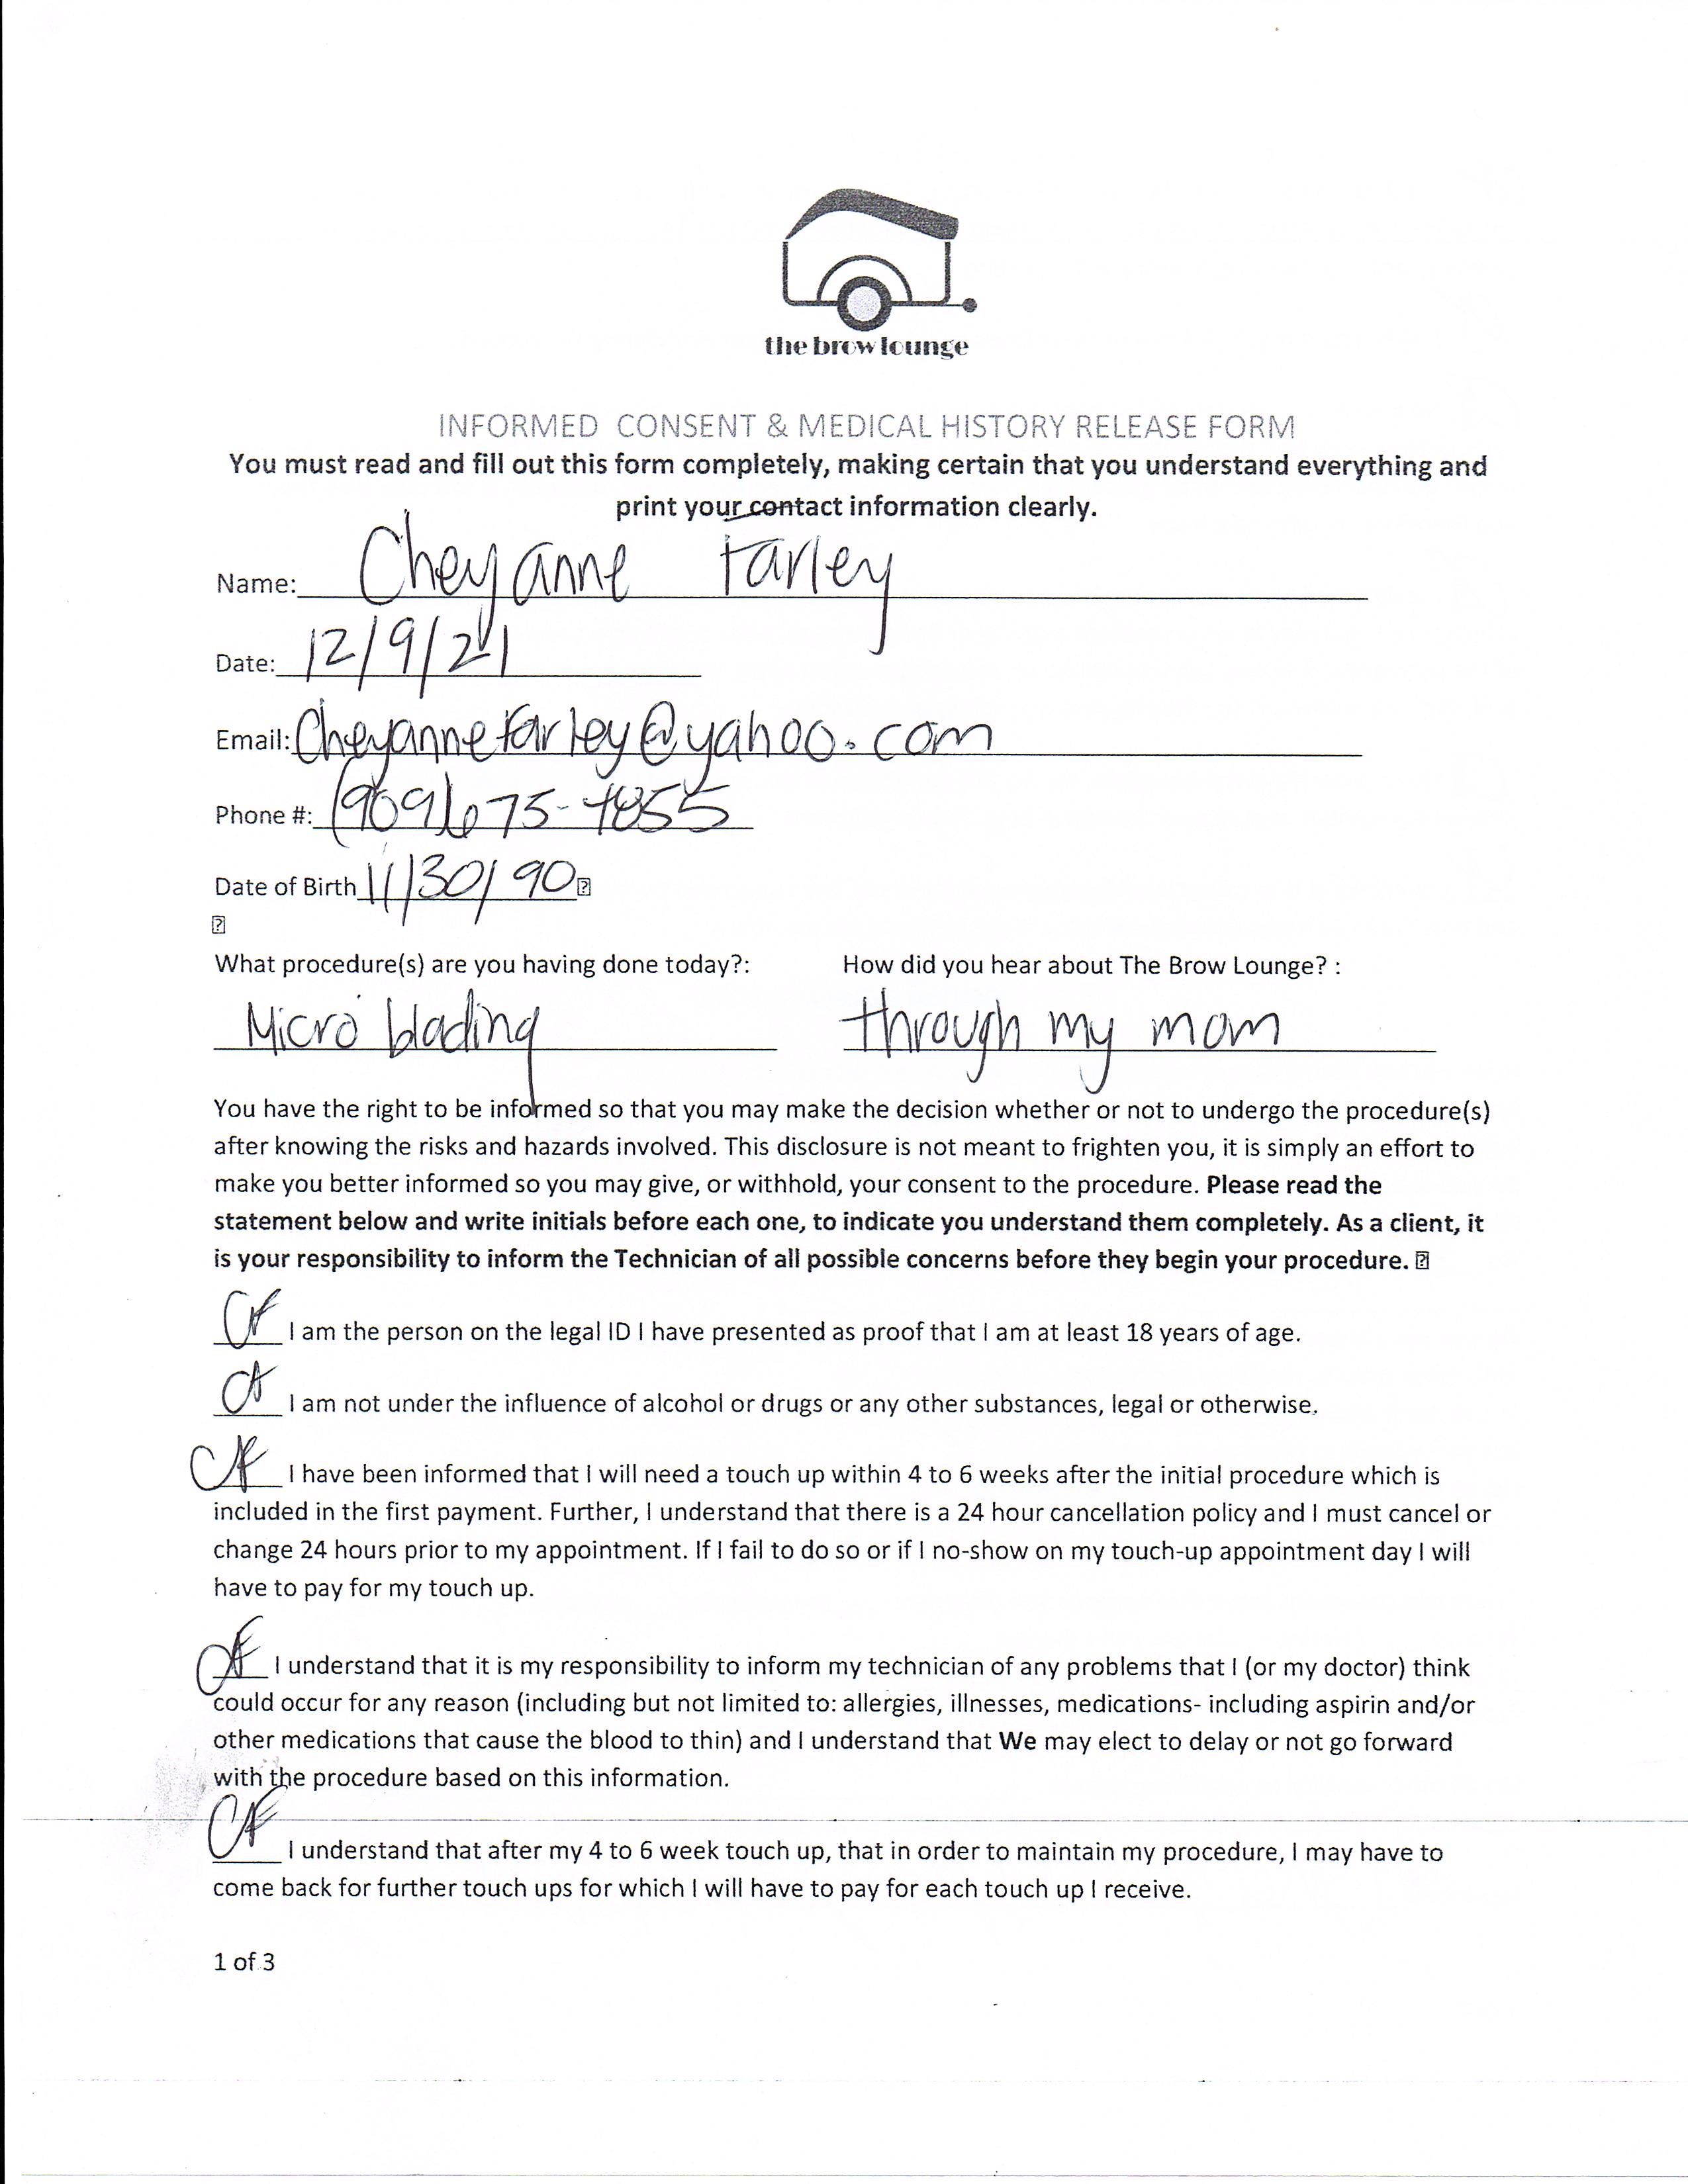 the brow lounge
INFORMED CONSENT & MEDICAL HISTORY RELEASE FORM
You must read and fill out this form completely, making certain that you understand everything and
print your contact information clearly.
Name: Cheyanne Farley
Date: 12/9/21
Email: Cheyannefarley@yahoo.com
Phone #: (909)675-4855
Date of Birth 11/30/90
What procedure(s) are you having done today?: How did you hear about The Brow Lounge? :
Micro blading through my mom
You have the right to be informed so that you may make the decision whether or not to undergo the procedure(s)
after knowing the risks and hazards involved. This disclosure is not meant to frighten you, it is simply an effort to
make you better informed so you may give, or withhold, your consent to the procedure. Please read the
statement below and write initials before each one, to indicate you understand them completely. As a client, it
is your responsibility to inform the Technician of all possible concerns before they begin your procedure.
CF I am the person on the legal ID I have presented as proof that I am at least 18 years of age.
CF I am not under the influence of alcohol or drugs or any other substances, legal or otherwise.
CF I have been informed that I will need a touch up within 4 to 6 weeks after the initial procedure which is
included in the first payment. Further, I understand that there is a 24 hour cancellation policy and I must cancel or
change 24 hours prior to my appointment. If I fail to do so or if I no-show on my touch-up appointment day I will
have to pay for my touch up.
CF I understand that it is my responsibility to inform my technician of any problems that I (or my doctor) think
could occur for any reason (including but not limited to: allergies, illnesses, medications- including aspirin and/or
other medications that cause the blood to thin) and I understand that We may elect to delay or not go forward
with the procedure based on this information.
CF I understand that after my 4 to 6 week touch up, that in order to maintain my procedure, I may have to
come back for further touch ups for which I will have to pay for each touch up I receive.
1 of 3